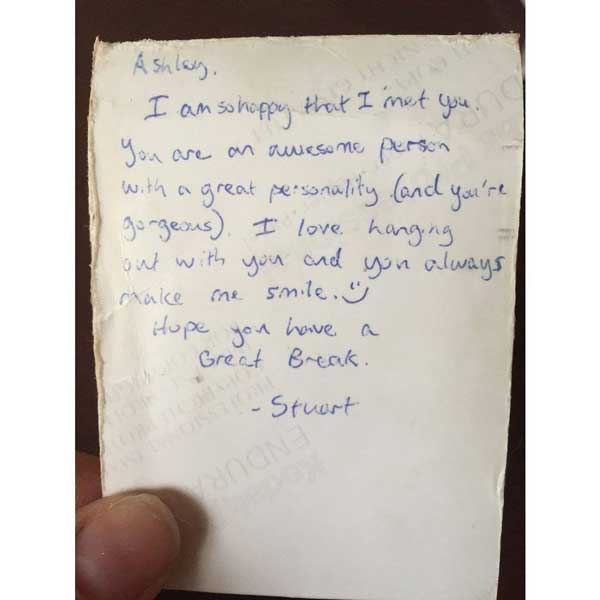 Ashley,
I am so happy that I met you.
You are an awesome person
with a great personality (and you're
gorgeous). I love hanging
out with you and you always
make me smile.
Hope you have a
Great Break.
- Stuart